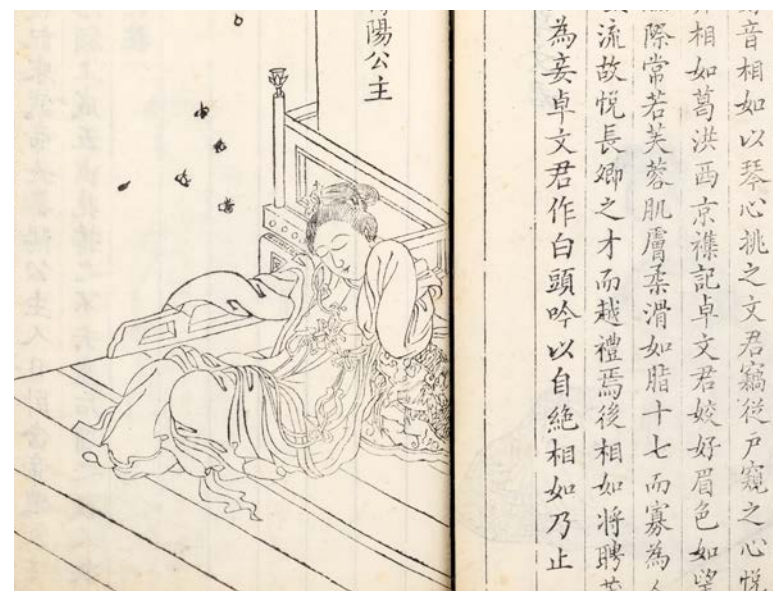 音相如以琴心挑之文君竊從戶窺之心悅
相如葛洪西京襍記卓文君姣好眉色如望
際常若芙蓉肌膚柔滑如脂十七而寡為人
流故悅長卿之才而越禮焉後相如將聘茂
為妾卓文君作白頭吟以自絕相如乃止
陽公主